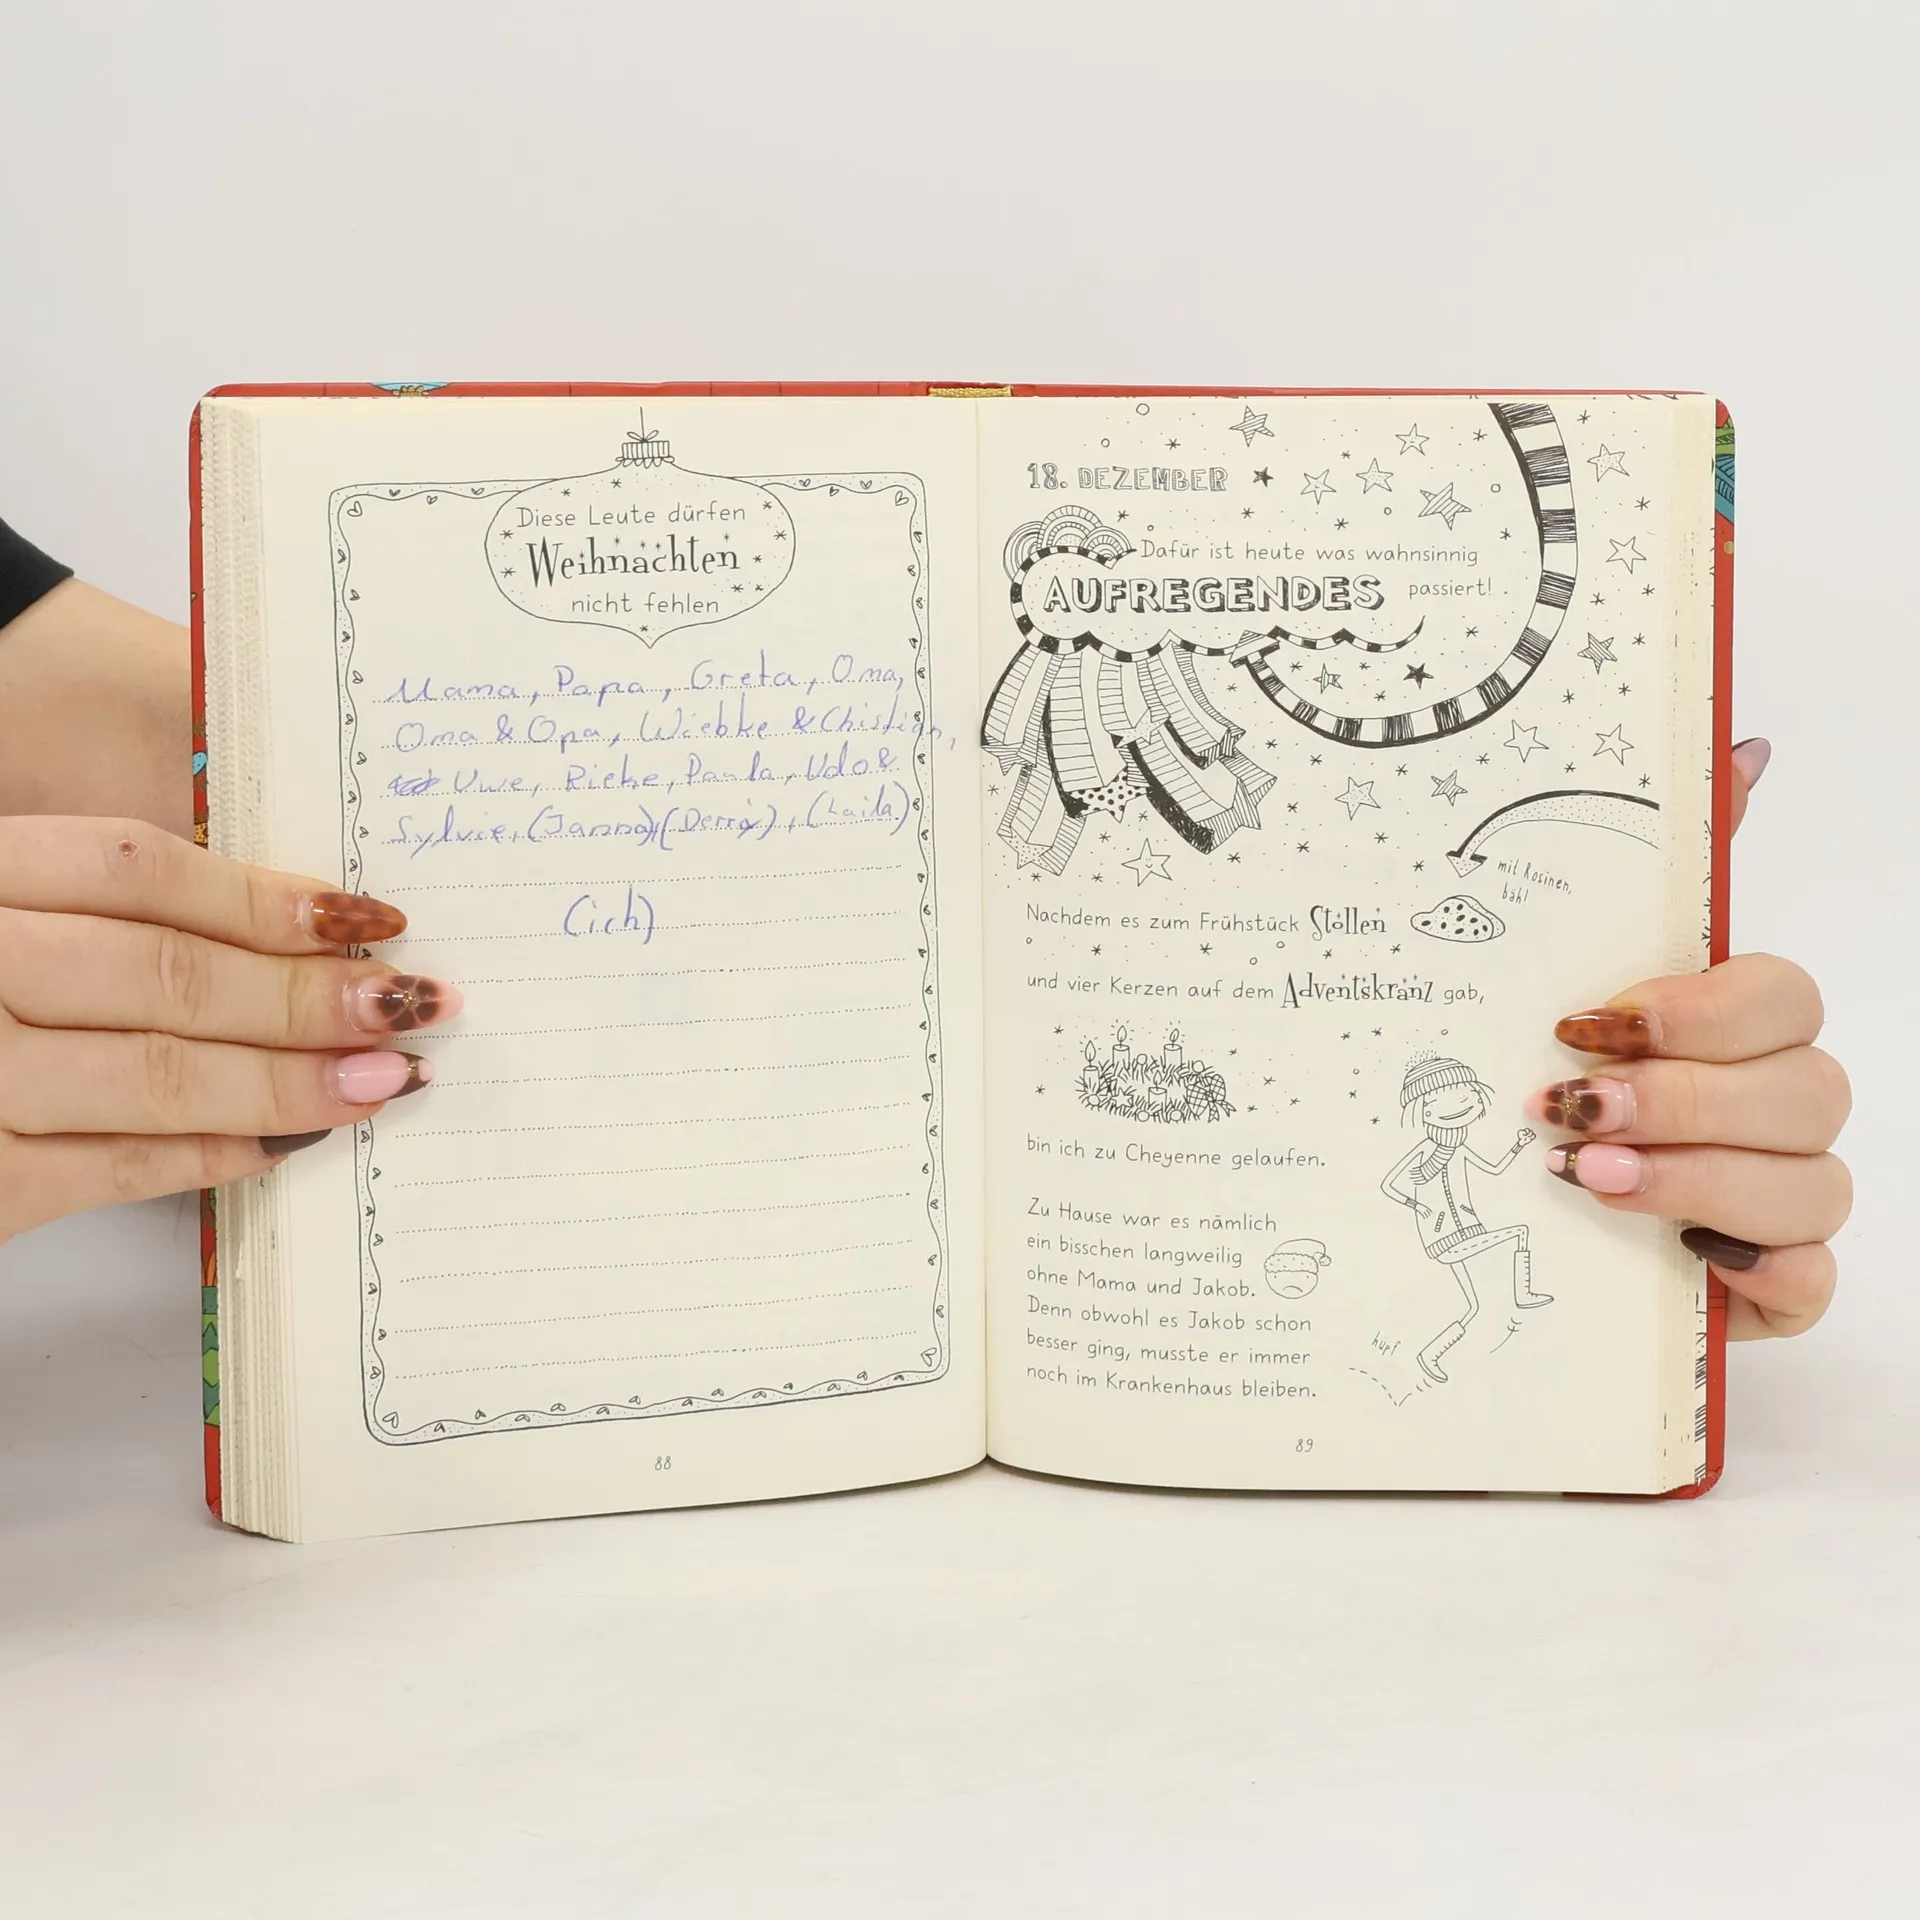 Diese Leute dürfen
Weihnachten
nicht fehlen
Mama, Papa, Greta, Oma,
Oma & Opa, Wiebke & Christian,
Uwe, Rieke, Paula, Udo &
Sylvie, (Janna), (), (Laila)
(ich)
88
18. DEZEMBER
Dafür ist heute was wahnsinnig
AUFREGENDES passiert!
mit Rosinen,
bäh!
Nachdem es zum Frühstück Stollen
und vier Kerzen auf dem Adventskranz gab,
bin ich zu Cheyenne gelaufen.
Zu Hause war es nämlich
ein bisschen langweilig
ohne Mama und Jakob.
Denn obwohl es Jakob schon
besser ging, musste er immer
noch im Krankenhaus bleiben.
hüpf
89